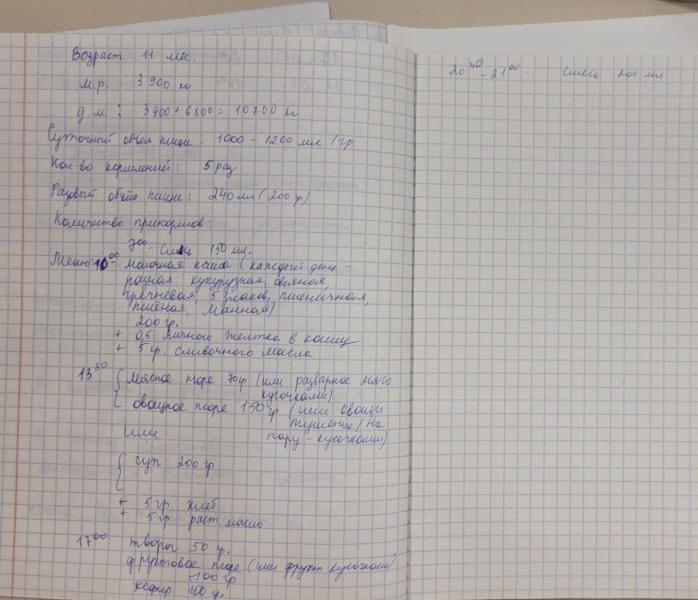 Возраст 11 мес.
м.р. 3900 кг
д.м.: 3900 + 6800 = 10700 кг
Суточный объем пищи: 1000 - 1200 мл / гр
Кол-во кормлений: 5 раз
Разовый объем пищи: 240 мл (200 гр)
Количество прикормов:
7 00 - смесь 150 мл.
Меню: 10 00 - молочная каша (каждый день -
разная: кукурузная, овсяная,
гречневая, 5 злаков, пшеничная,
пшенная, манная)
200 гр.
+ 0,5 яичного желтка в кашу
+ 5 гр. сливочного масла
13 30 мясное пюре 70 гр (или разварное мясо
кусочками)
овощное пюре 150 гр (или овощи
тушеные / на
или пару - кусочками)
суп 200 гр
+ 5 гр. хлеб
+ 5 гр раст. масло
17 00 творог 50 гр.
фруктовое пюре (или фрукт кусочками)
- 100 гр
кефир 100 гр.
20 30 - 21 00 - смесь 200 мл